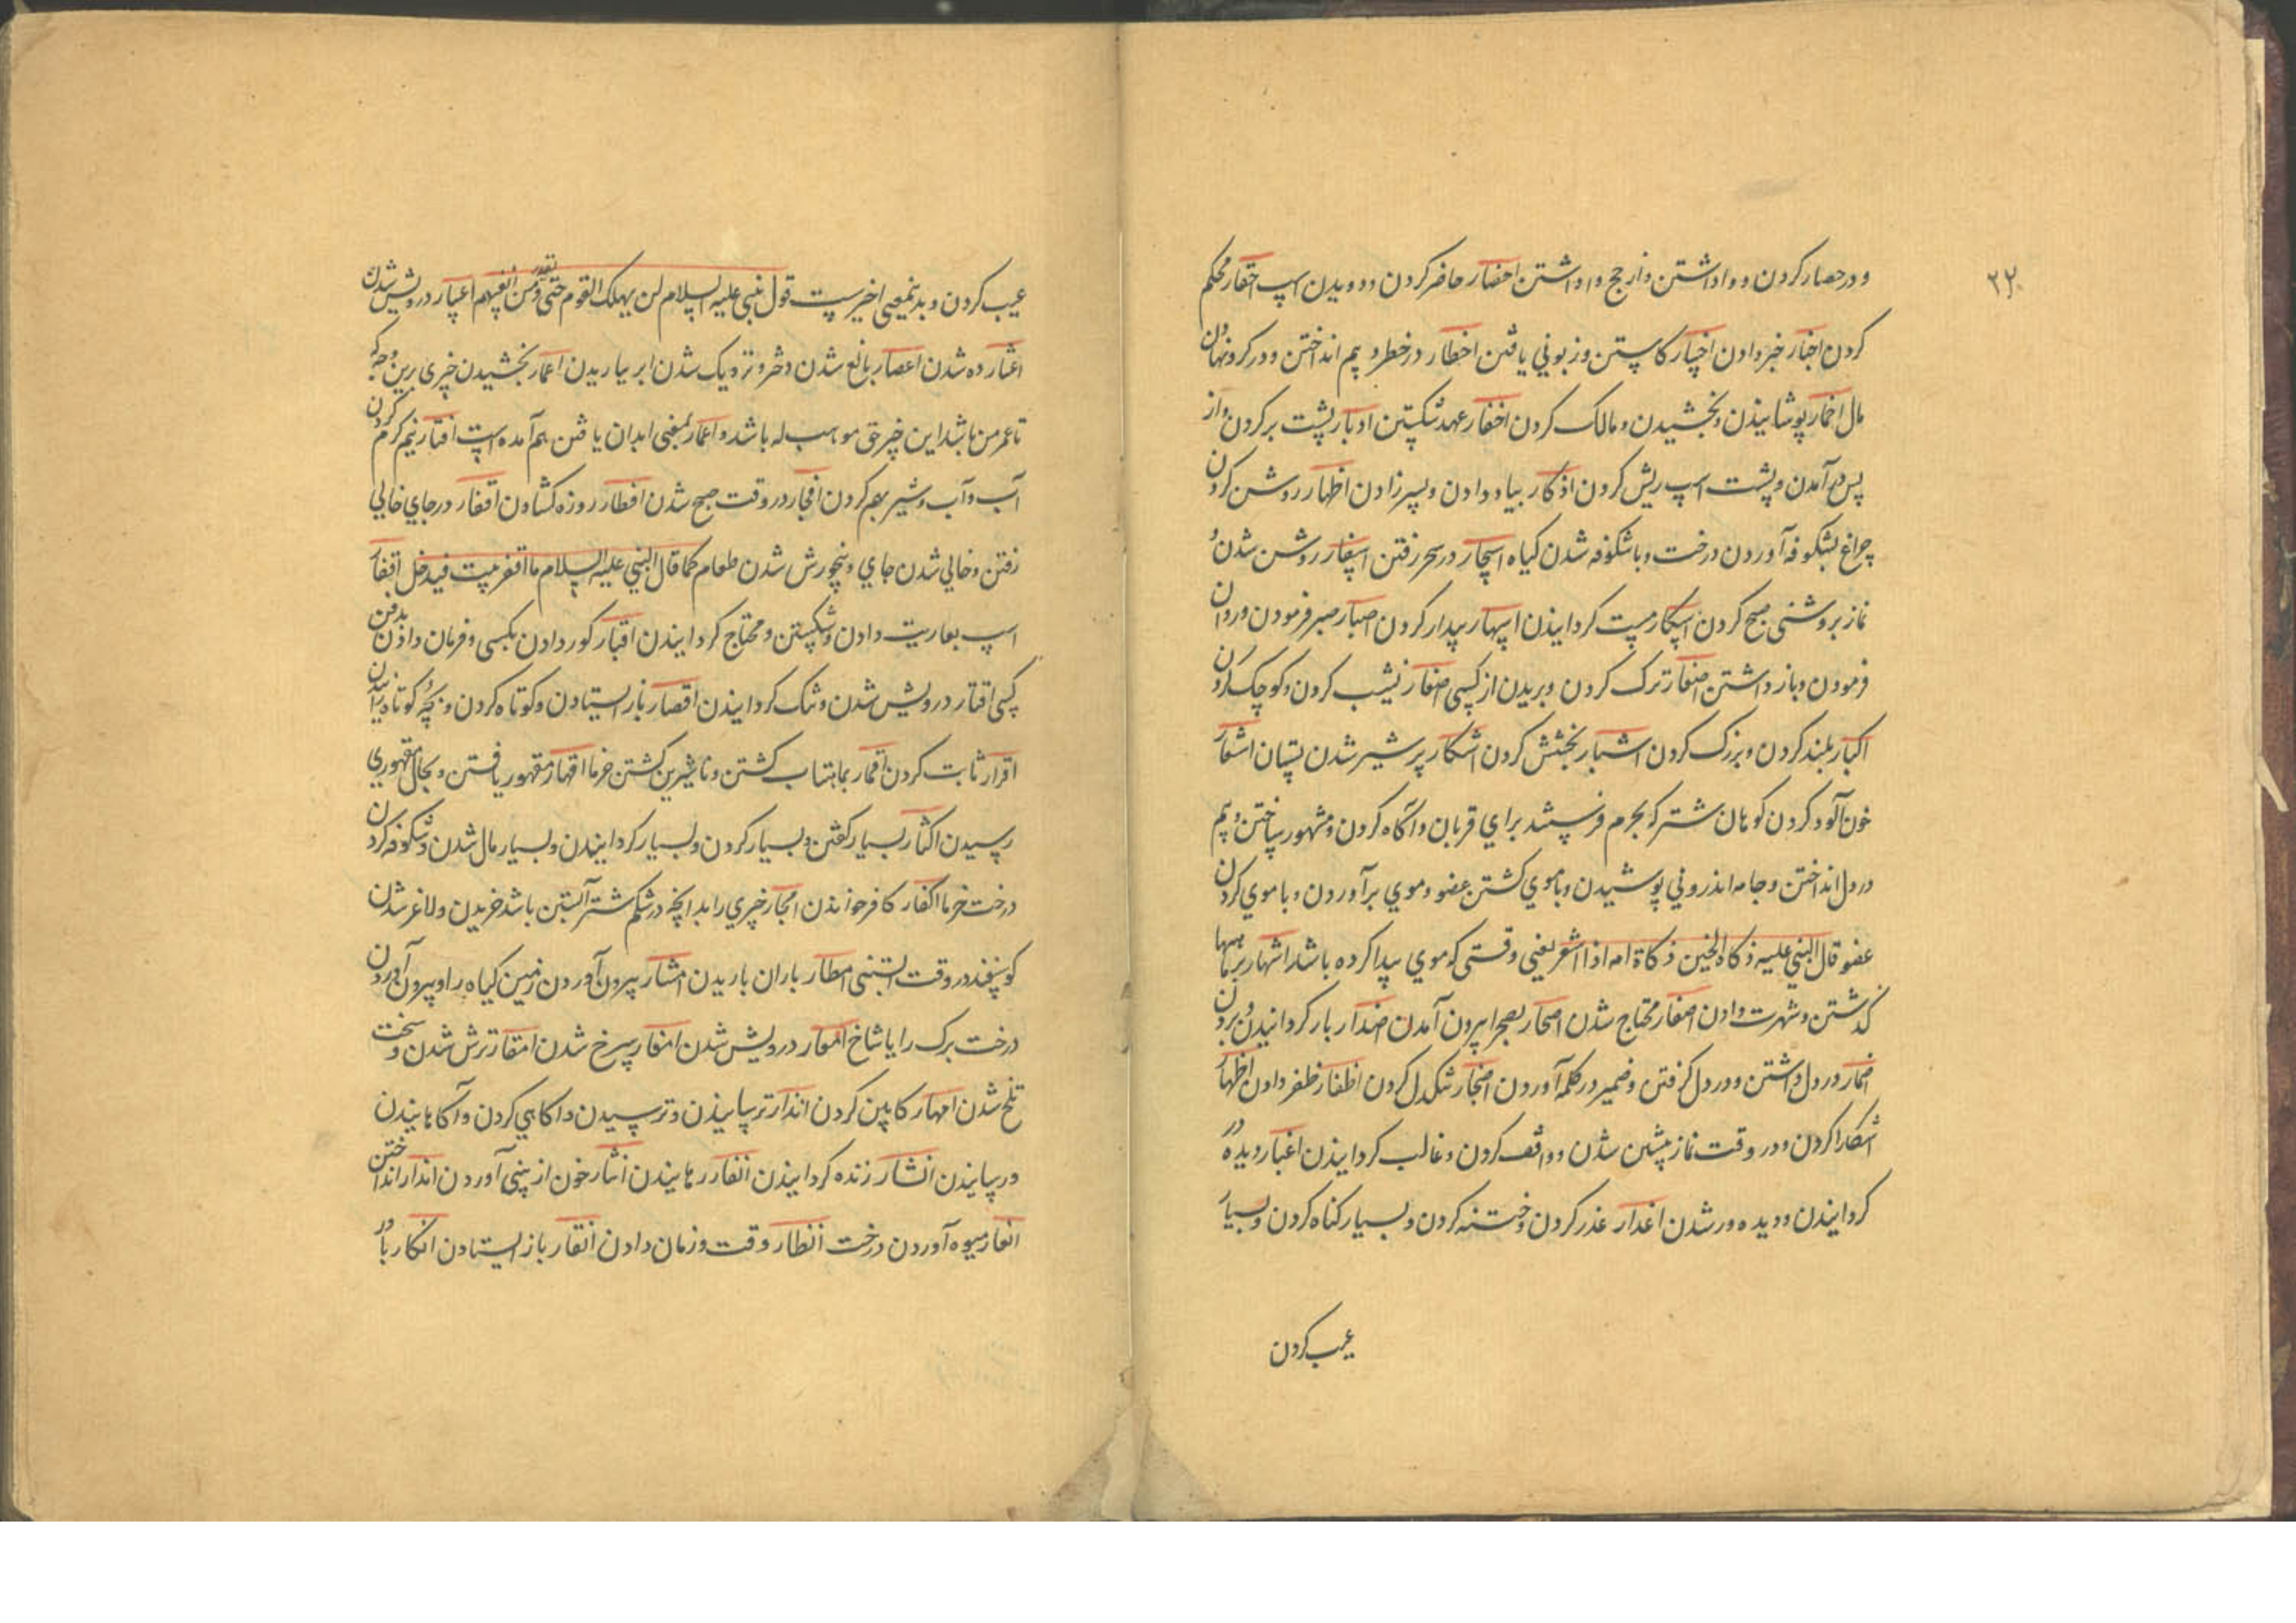 ۲۲
و در حصار کردن و واداشتن و از حج واداشتن احضار حاضر کردن و دویدن اسپ احقار محکم
کردن اخبار خبر دادن اخسار کاستن و زبونی یافتن اخطار در خطر و بیم انداختن و در کرو نهادن
مال اخمار پوشانیدن و بخشیدن و مالک کردن اخفار عهد شکستن ادبار پشت بر کردن و از
پس در آمدن و پشت اسپ ریش کردن اذکار بیاد دادن و پسر زادن اظهار روشن کردن
چراغ بشکوفه آوردن درخت و با شکوفه شدن کیاه اسحار در سحر رفتن اسفار روشن شدن و
نماز بروشنی صبح کردن اسکار مست کردانیدن اسهار بیدار کردن اصبار صبر فرمودن و روان
فرمودن و باز داشتن اصغار ترک کردن و بریدن از کسی اصغار نشیب کردن و کوچک کردن
اکبار بلند کردن و بزرک کردن اشبار بخشش کردن اشکار پر شیر شدن پستان اشعار
خون آلود کردن کوهان شتر که بحرم فرستند برای قربان و آکاه کردن و مشهور ساختن و بیم
در دل انداختن و جامه اندرونی پوشیدن و با موی کشتن عضو و موی بر آوردن و با موی کردن
عضو قال النبی علیه ذکاة الجنین ذکاة امه اذا اشعر یعنی وقتی که موی پیدا کرده باشد اشهار بر ماهها
کذشتن و شهرت دادن اصفار محتاج شدن اصحار بصحرا بیرون آمدن اصدار باز کردانیدن و بردن
اضمار در دل داشتن و در دل کرفتن و ضمیر در کلمه آوردن اضجار تنکدل کردن اظفار ظفر دادن اظهار
آشکارا کردن و در وقت نماز پیشین شدن و واقف کردن و غالب کردانیدن اعبار دیده ور
کردانیدن و دیده ور شدن اعذار عذر کردن و ختنه کردن و بسیار کناه کردن و بسیار
عیب کردن
عیب کردن و بدینمعنی اخیرست قول نبی علیه السلام لن یهلک القوم حتی یعذر من انفسهم اعسار درویش شدن
اعشار ده شدن اعصار بالغ شدن دختر و نزدیک شدن ابر بباریدن اعمار بخشیدن چیزی برین وجه که
تا عمر من باشد این چیز حق موهب له باشد و اعمار بمعنی ابدان یافتن هم آمده است افتار نیم کرم کردن
آب و آب و شیر بهم کردن افجار در وقت صبح شدن افطار روزه کشادن اقفار در جای خالی
رفتن و خالی شدن جای و نیخورش شدن طعام کما قال النبی علیه السلام ما اقفر بیت فیه خل افقار
اسپ بعاریت دادن و شکستن و محتاج کردانیدن اقبار کور دادن بکسی و فرمان دادن بدفن
کسی اقتار درویش شدن و تنک کردانیدن اقصار باز ایستادن و کوتاه کردن و بچه کوتاه زائیدن
اقرار ثابت کردن اقمار بماهتاب کشتن و نا شیرین کشتن خرما اقهار مقهور یافتن و بحال مقهوری
رسیدن اکثار بسیار کفتن و بسیار کردن و بسیار کردانیدن و بسیار مال شدن و شکوفه کردن
درخت خرما اکفار کافر خواندن امجار چیزی را بدانچه در شکم شتر آبستن باشد خریدن و لاغر شدن
کوسپند در وقت آبستنی امطار باران باریدن امشار بیرون آوردن زمین کیاه را و بیرون آوردن
درخت برک را با شاخ امعار درویش شدن امغار سرخ شدن امقار ترش شدن و سخت
تلخ شدن امهار کابین کردن انذار ترسانیدن و ترسیدن و اکاهی کردن و آکاهانیدن
و رسانیدن انشار زنده کردانیدن انفار رمانیدن انثار خون از بینی آوردن اندار انداختن
اثمار میوه آوردن درخت انظار وقت و زمان دادن انقار باز ایستادن انکار باور